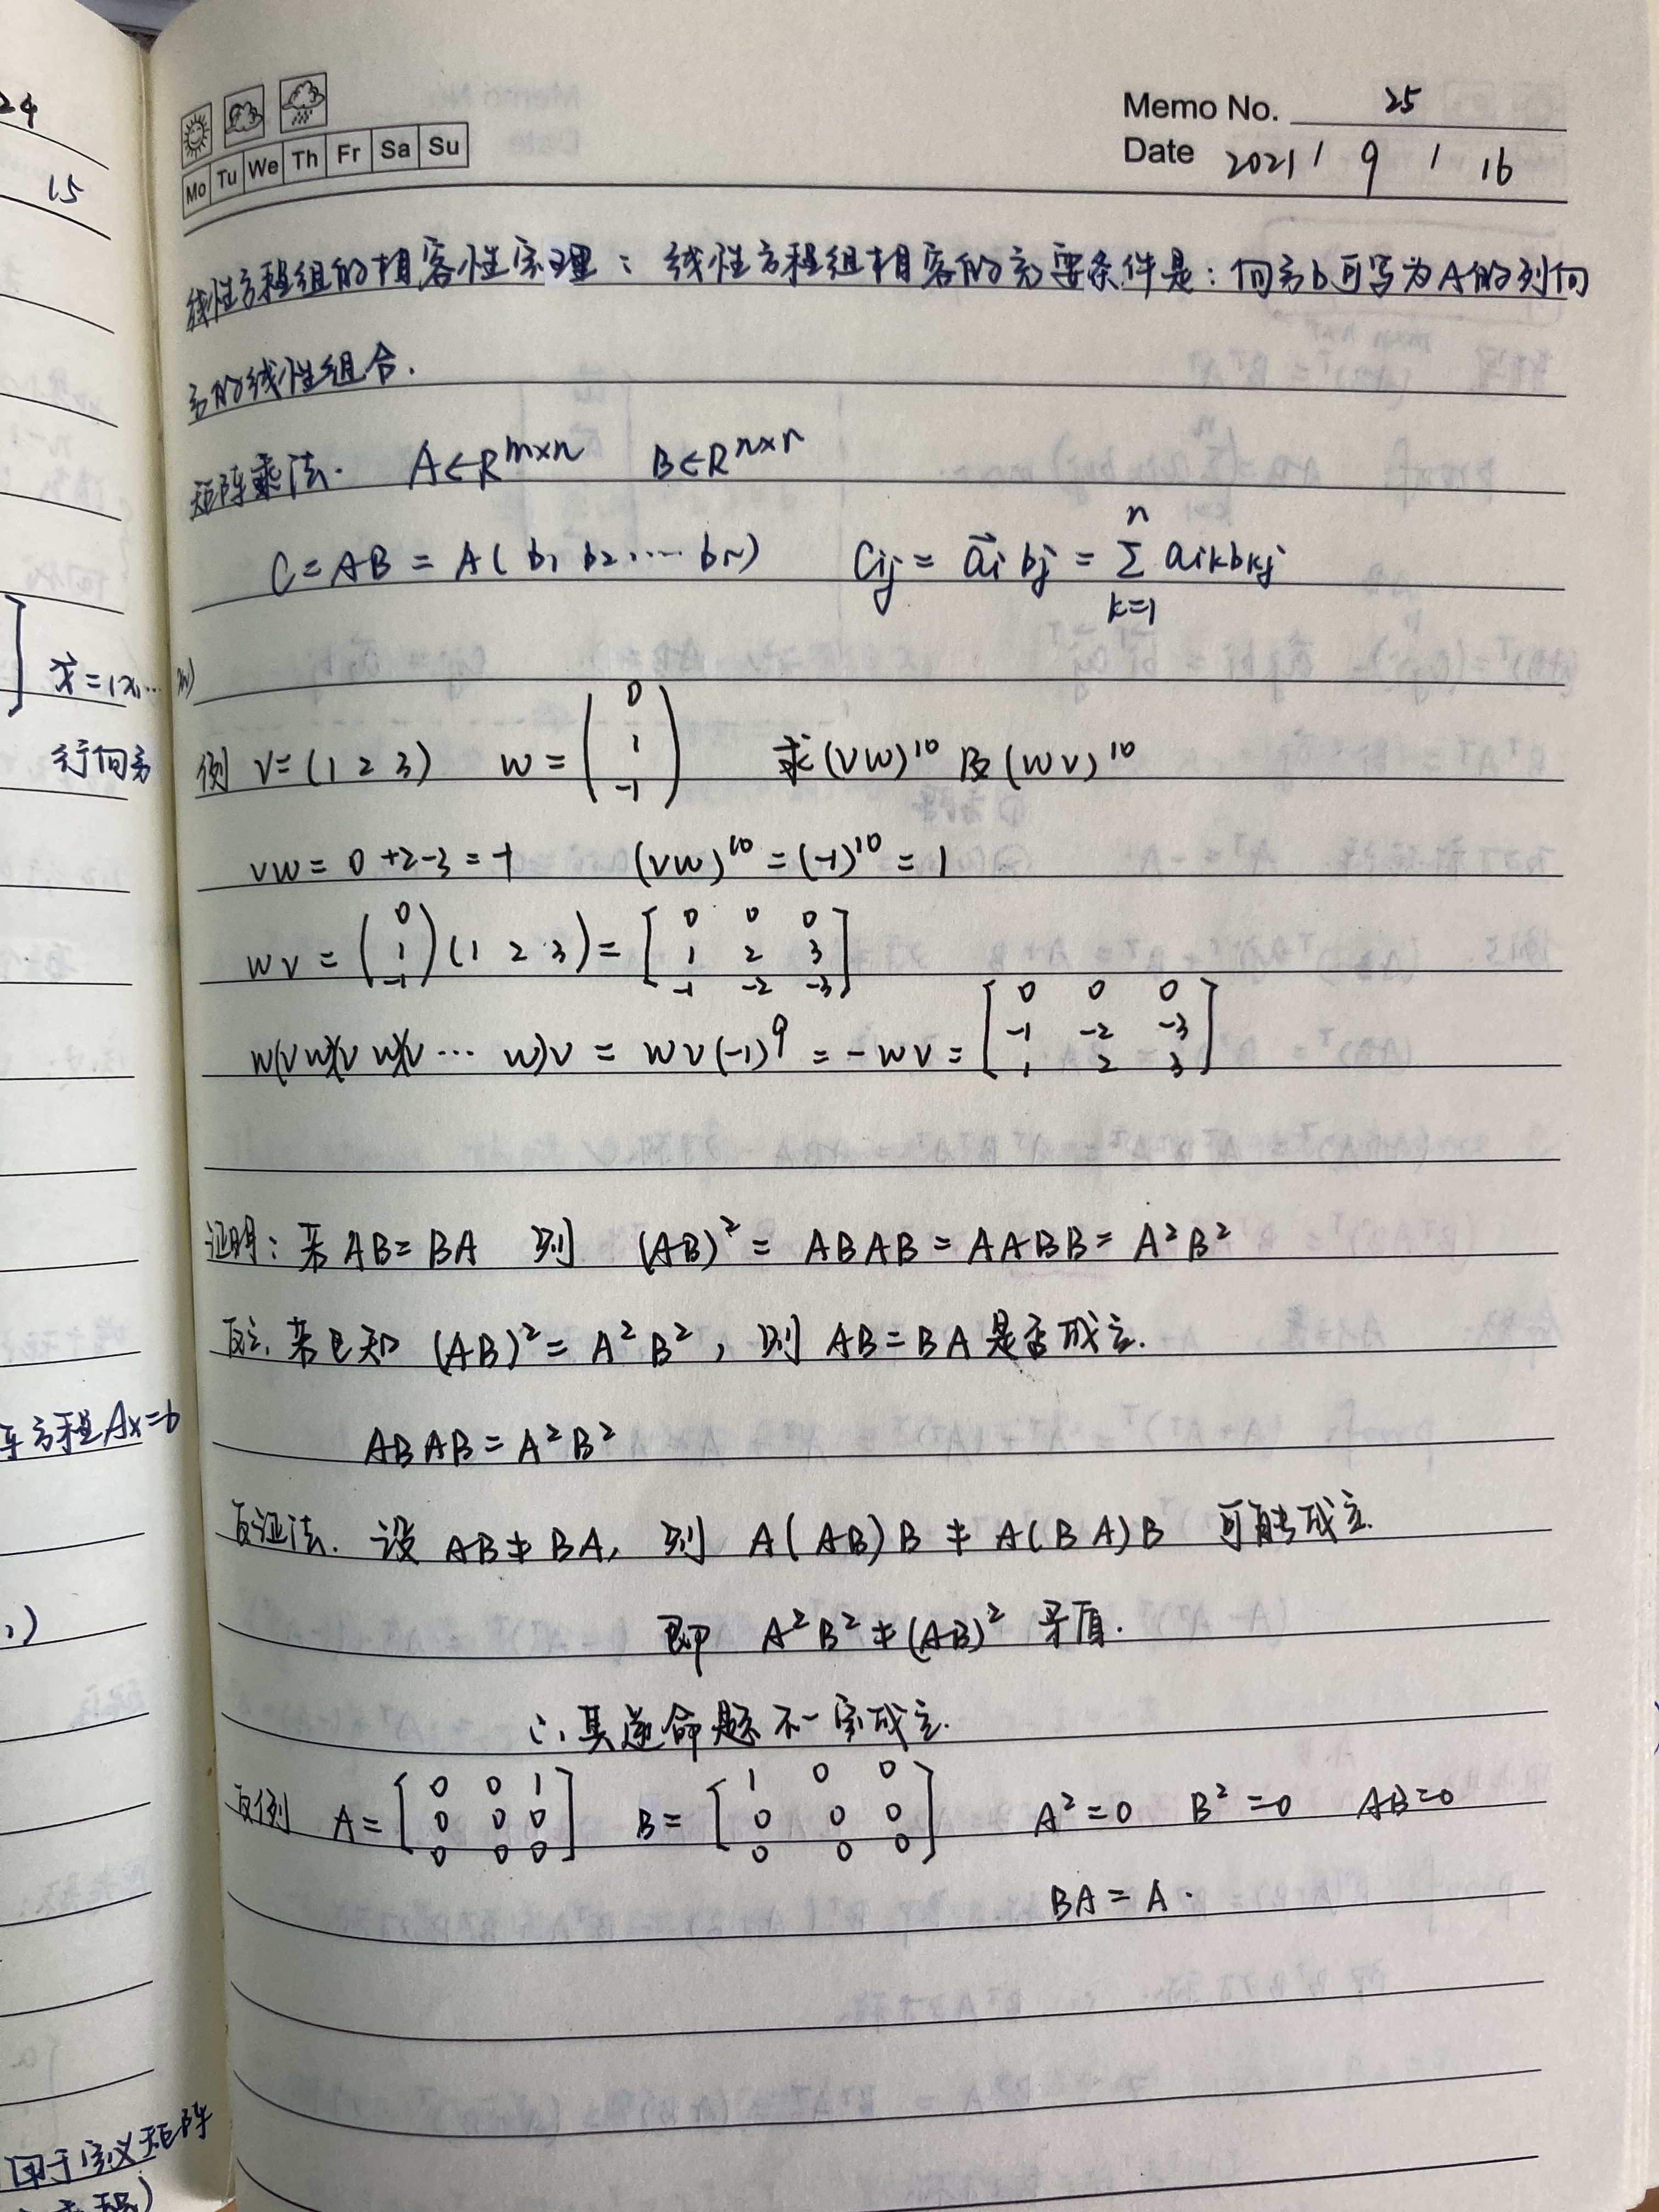 24
15
x⃗=(x₁...xₙ)
行向量
Ax=b
用于定义矩阵
Mo Tu We Th Fr Sa Su
Memo No. 25
Date 2021 / 9 / 16
线性方程组的相容性定理：线性方程组相容的充要条件是：向量b可写为A的列向
量的线性组合.
矩阵乘法. A∈R^{m×n} B∈R^{n×r}
C=AB=A(b₁ b₂ ... bᵣ) Cij = a⃗i bj = Σ_{k=1}^{n} aik bkj
例 V=(1 2 3) W=(0 1 -1) 求(VW)^{10}及(WV)^{10}
VW=0+2-3=-1 (VW)^{10}=(-1)^{10}=1
WV=(0 1 -1)(1 2 3)=[0 0 0; 1 2 3; -1 -2 -3]
W(VW)(VW)(V... W)V = WV(-1)^9 = -WV = [0 0 0; -1 -2 -3; 1 2 3]
证明：若AB=BA 则 (AB)²=ABAB=AABB=A²B²
反之,若已知 (AB)²=A²B², 则 AB=BA是否成立.
ABAB=A²B²
反证法. 设AB≠BA, 则 A(AB)B≠A(BA)B 可能成立.
即 A²B²≠(AB)² 矛盾.
∴其逆命题不一定成立.
反例 A=[0 0 1; 0 0 0; 0 0 0] B=[1 0 0; 0 0 0; 0 0 0] A²=0 B²=0 AB=0
BA=A.